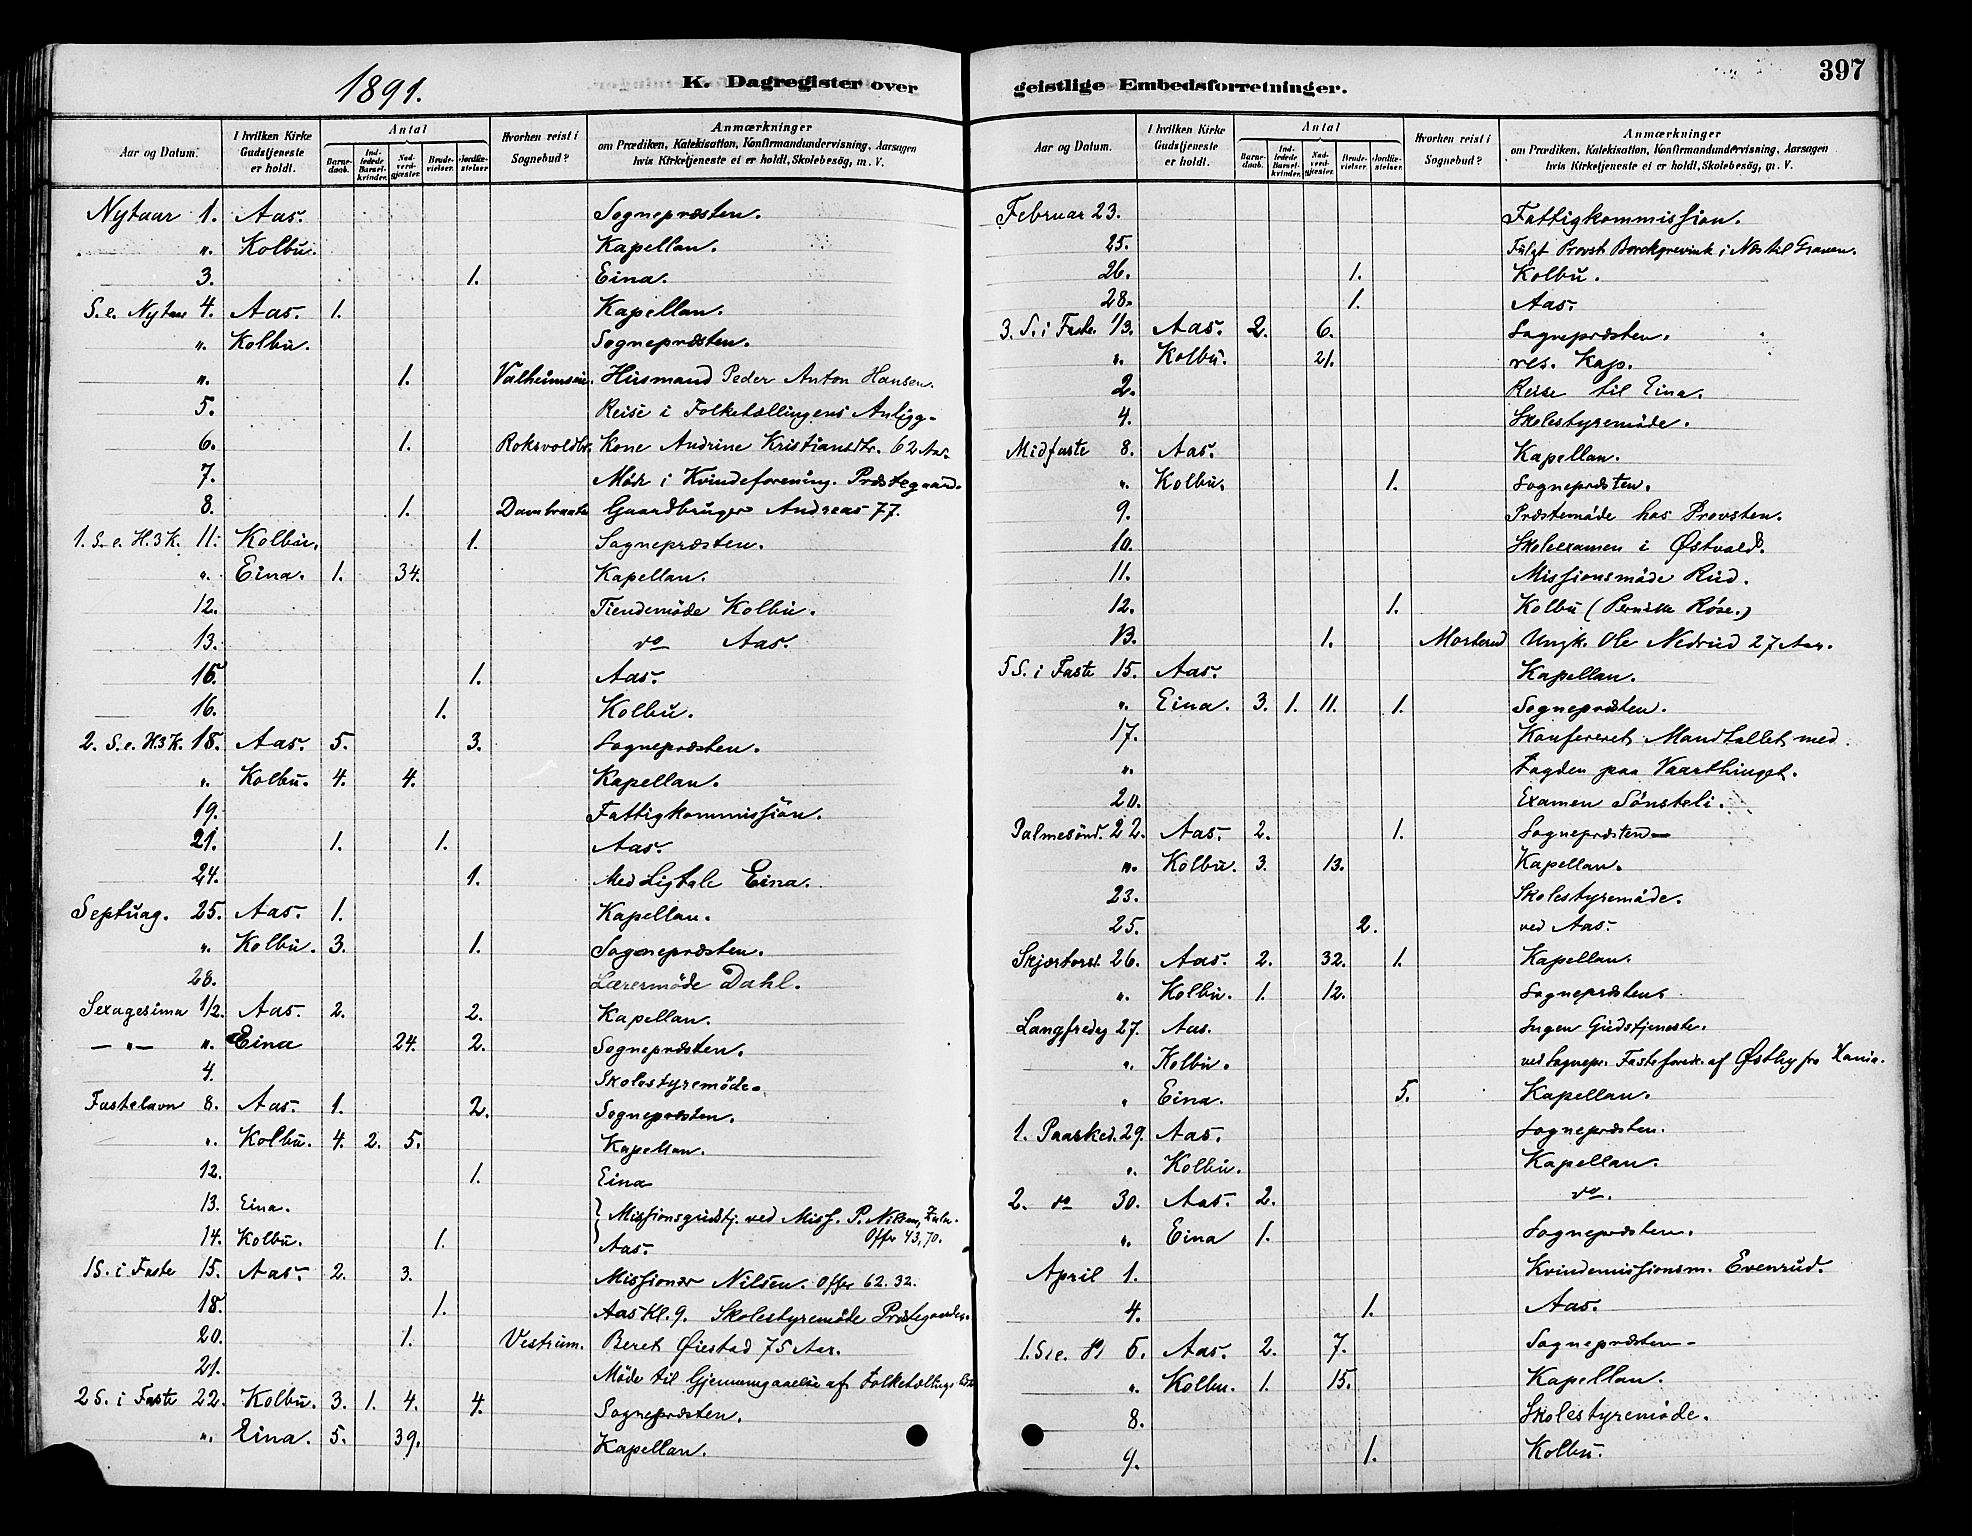 1891.
K. Dagregister over
Aar og Datum.
I hvilken Kirke Gudstjeneste er holdt.
Antal
Barnedaab.
Indledede Barselkvinder.
Nadverdgjæster.
Brudevielser.
Jordfæstelser.
Hvorhen reist i Sognebud?
Anmærkninger
om Prædiken, Katekisation, Konfirmandundervisning, Aarsagen
hvis Kirketjeneste ei er holdt, Skolebesög, m. V.
Nytaar 1. Aas. Sognepræsten.
" Kolbu. Kapellan.
3. 1. Eina.
S. e. Nytaar 4. Aas. 1. Kapellan.
" Kolbu. Sognepræsten.
" 1. Husmand Peder Anton Hansen.
5. Reise i Folketællingens Anligg-
6. 1. Kone Andrine Kristiansdtr. 62 Aar.
7. Möde i Kvindeforening. Præstegaard.
8. 1. Gaardbruger Andreas 77.
1. S. e. H.3K. 11. Kolbu. 1. Sognepræsten.
" Eina. 1. 34. Kapellan.
12. Tiendemöde Kolbu.
13. do Aas.
15. 1. Aas.
16. 1. Kolbu.
2. S. e. H.3K. 18. Aas. 5. 3. Sognepræsten.
" Kolbu. 4. 4. Kapellan.
19. Fattigkommission.
21. 1. 1. Aas.
24. 1. Med Ligtale Eina.
Septuag. 25. Aas. 1. Kapellan.
" Kolbu. 3. 1. Sognepræsten.
28. Lærermöde Dahl.
Sexagesima 1/2. Aas. 2. 2. Kapellan.
— " — " Eina 24. 2. Sognepræsten.
4. Skolestyremöde.
Fastelavn 8. Aas. 1. 2. Sognepræsten.
" Kolbu. 4. 2. 5. Kapellan.
12. 1. Eina
13. Eina. Missionsgudstj. ved Miss. P. Nilsen, Zulu.
Offer 43,70.
14. Kolbu. 1. Aas.
1 S. i Faste 15. Aas. 2. 3. Missionær Nilsen. Offer 62.32.
18. 1. Aas Kl. 9. Skolestyremöde Præstegaarden.
20. 1. Vestrum. Beret Øiestad 75 Aar.
21. Möde til Gjennemgaaelse af Folketællings
2 S. i Faste 22. Kolbu. 3. 1. 4. 4. Sognepræsten.
" Eina. 5. 39. Kapellan.
geistlige Embedsforretninger.
397
Aar og Datum.
I hvilken Kirke Gudstjeneste er holdt.
Antal
Barnedaab.
Indledede Barselkvinder.
Nadverdgjæster.
Brudevielser.
Jordfæstelser.
Hvorhen reist i Sognebud?
Anmærkninger
om Prædiken, Katekisation, Konfirmandundervisning, Aarsagen
hvis Kirketjeneste ei er holdt, Skolebesög, m. V.
Februar 23. Fattigkommission.
25. Fulgt Provst Borchgrevink i Næs til Graven.
26. 1. Kolbu.
28. 1. Aas.
3. S. i Faste. 1/3. Aas. 2. 6. Sognepræsten.
" Kolbu. 21. res. Kap.
2. Reise til Eina.
4. Skolestyremöde.
Midfaste 8. Aas. Kapellan.
" Kolbu. 1. Sognepræsten.
9. Præstemöde hos Provsten.
10. Skoleexamen i Østvold.
11. Missionsmöde Rud.
12. 1. Kolbu (Pernille Røse.)
13. 1. Morterud Ungk. Ole Nedrud 27 Aar.
5 S. i Faste 15. Aas. Kapellan.
" Eina. 3. 1. 11. 1. Sognepræsten.
17. Konfereret Mandtallet med
" Fogden paa Vaarthinget.
20. Examen Sönsteli.
Palmesönd. 22. Aas. 2. 1. Sognepræsten
" Kolbu. 3. 13. Kapellan.
23. Skolestyremöde.
25. 2. ved Aas.
Skjærtorsd. 26. Aas. 2. 32. 1. Kapellan.
" Kolbu. 1. 12. Sognepræsten.
Langfredag 27. Aas. Ingen Gudstjeneste.
" Kolbu. ved Sognepr. af Østby fra Xania.
" Eina. 5. Kapellan.
1. Paasked. 29. Aas. Sognepræsten.
" Kolbu. Kapellan.
2. do 30. Aas. 2. do.
" Eina 1. Sognepræsten.
April 1. Kvindemissionsm. Evenrud.
4. 1. Aas.
1. S. e. P 5. Aas. 2. 7. Sognepræsten
" Kolbu. 1. 15. Kapellan.
8. Skolestyremöde.
9. 1. Kolbu.